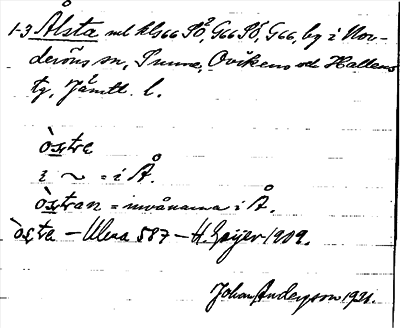 1-3 Ålsta nl kls66 SÖ, G66 SÖ, G66, by i Nor-
deröns sn, Sunne, Ovikens och Hallens
tg, Jämtl. l.
òstre
i ~ = i Å.
òstran = invånarna i Å.
òsta – Ulma 587 – H. Geijer 1909.
Johan Anderson 1931.